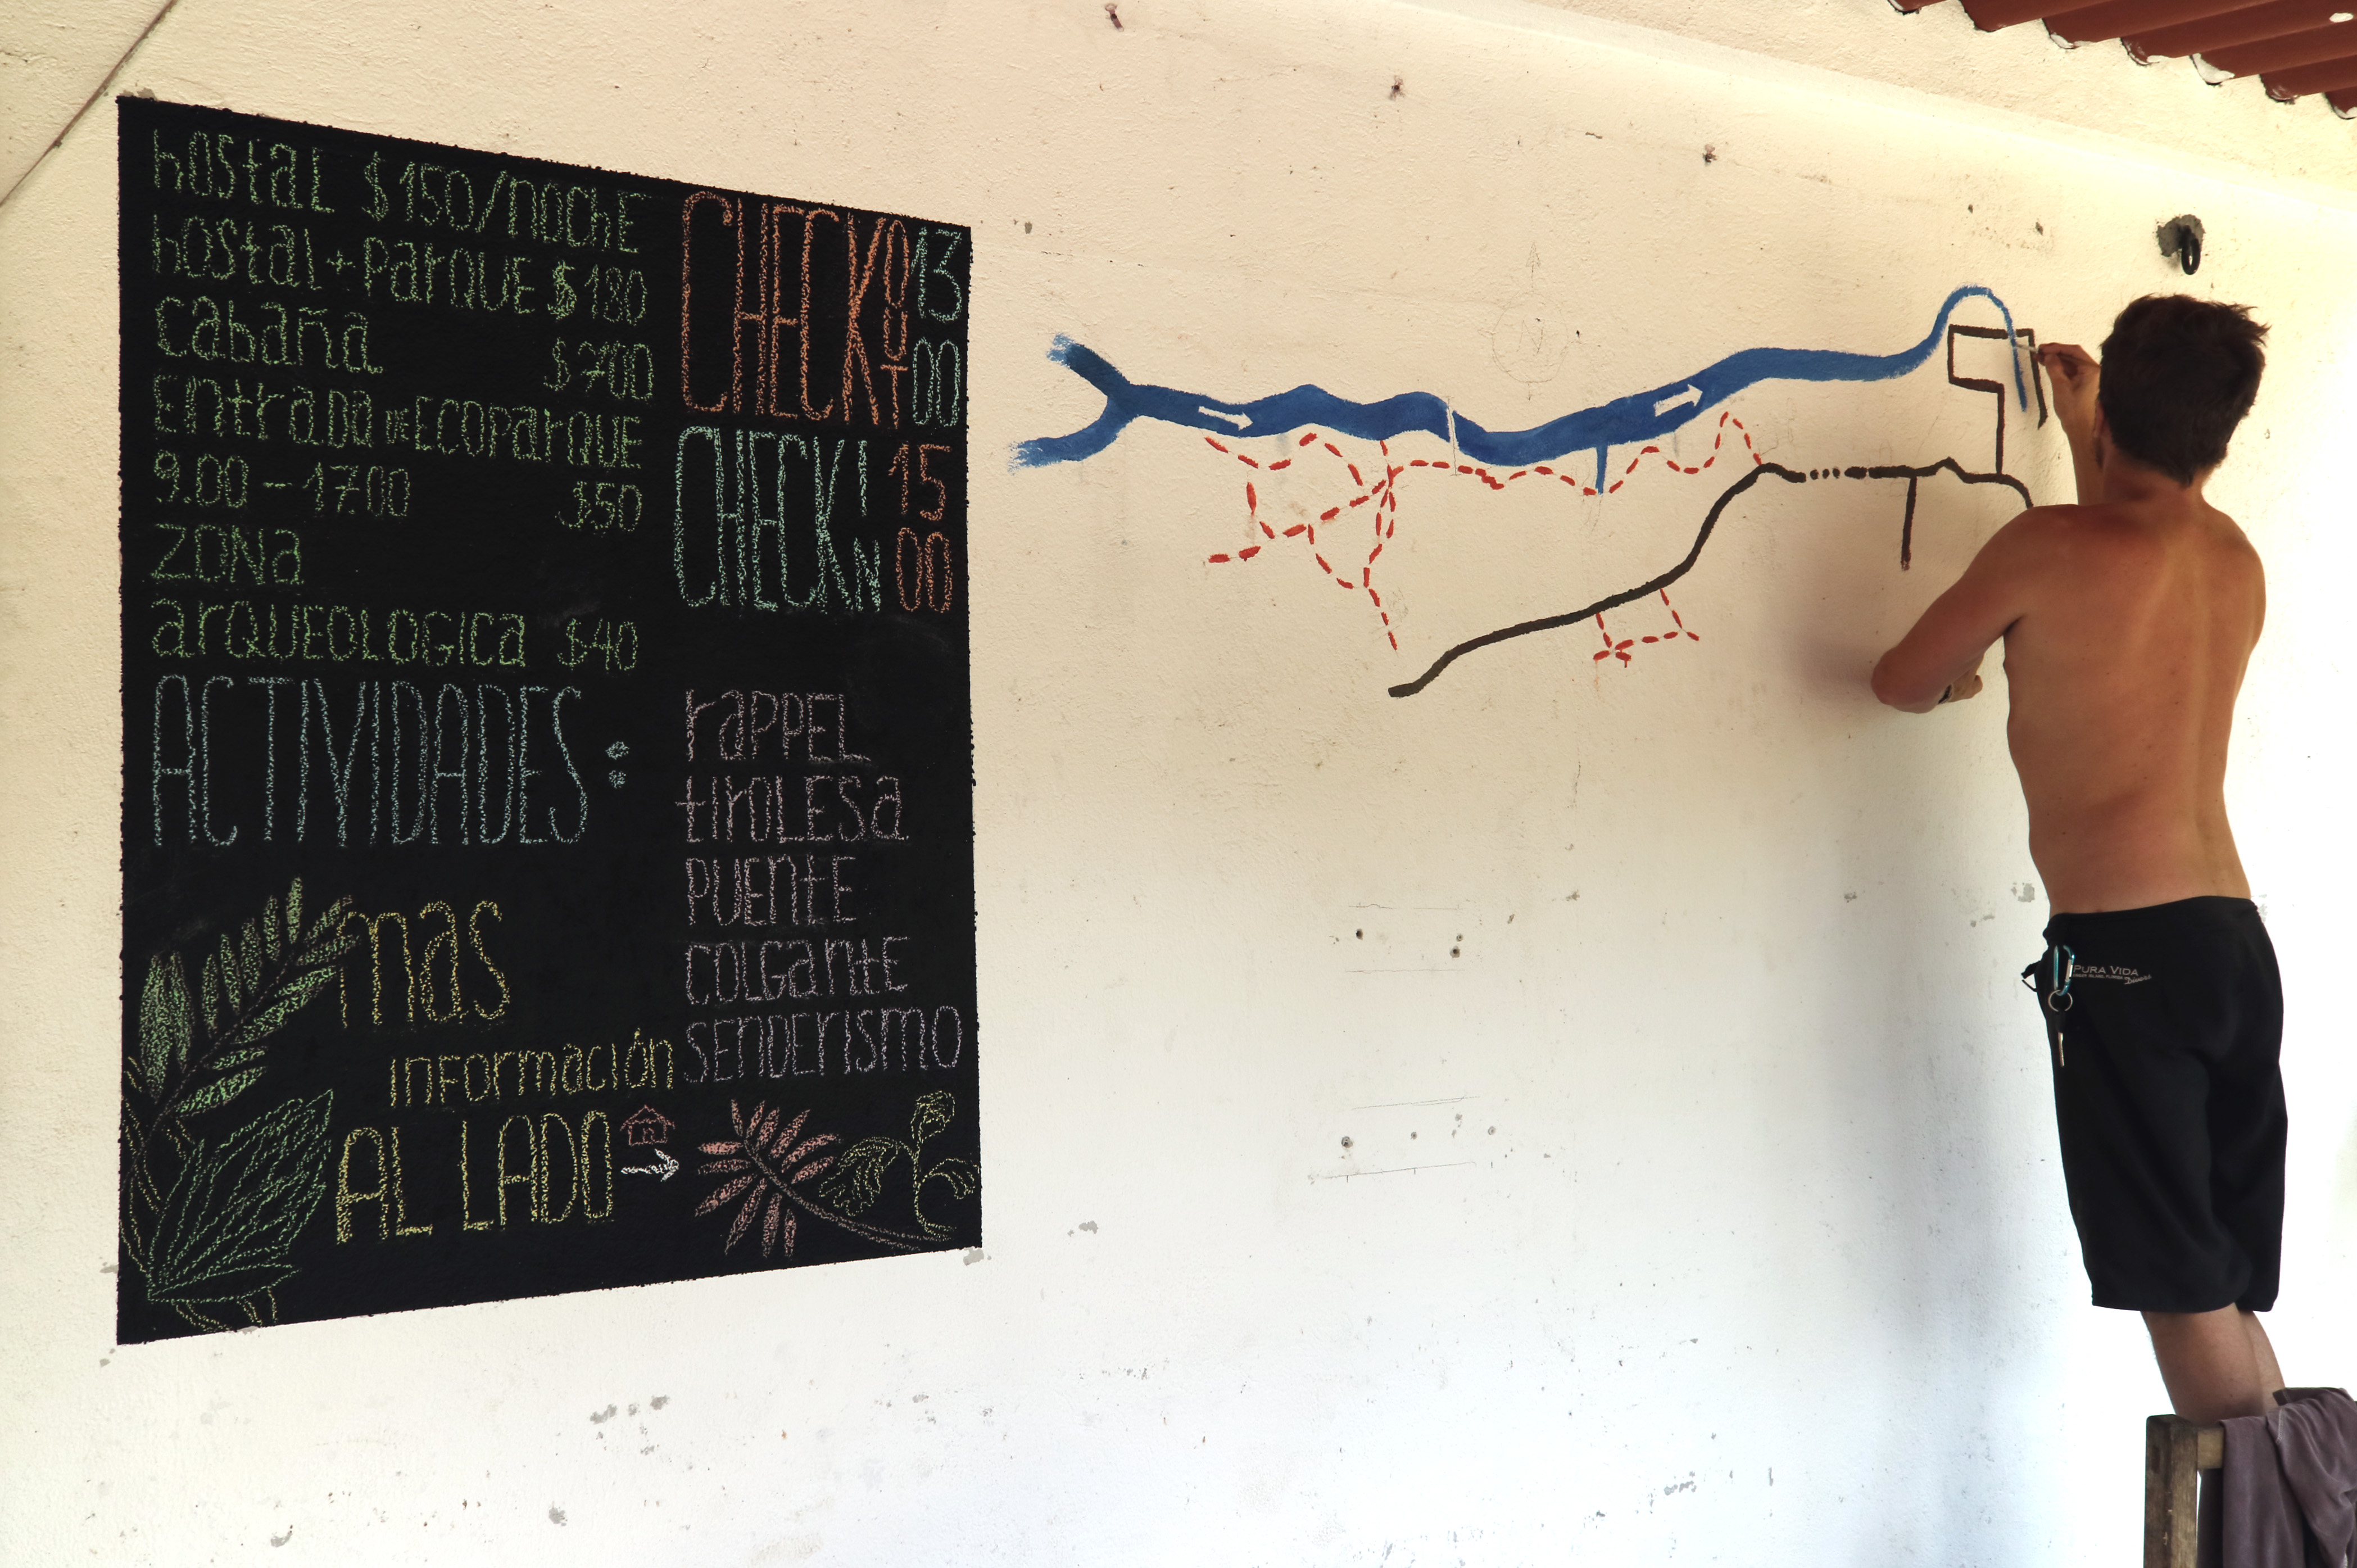 hostal $150/nochE
hostal + ParQUE $180
cabaña $700
EntraDa DE EcoParQUE
9.00 - 17.00 $50
ZONa
arQUEOLOGIca $40
ACTIVIDADES:
mas
InFormación
AL LADO
CHECK OUT 13 00
CHECK IN 15 00
raPPEL
tiroLESa
PUEntE
COLGantE
SEnDErismo
N
PURA VIDA